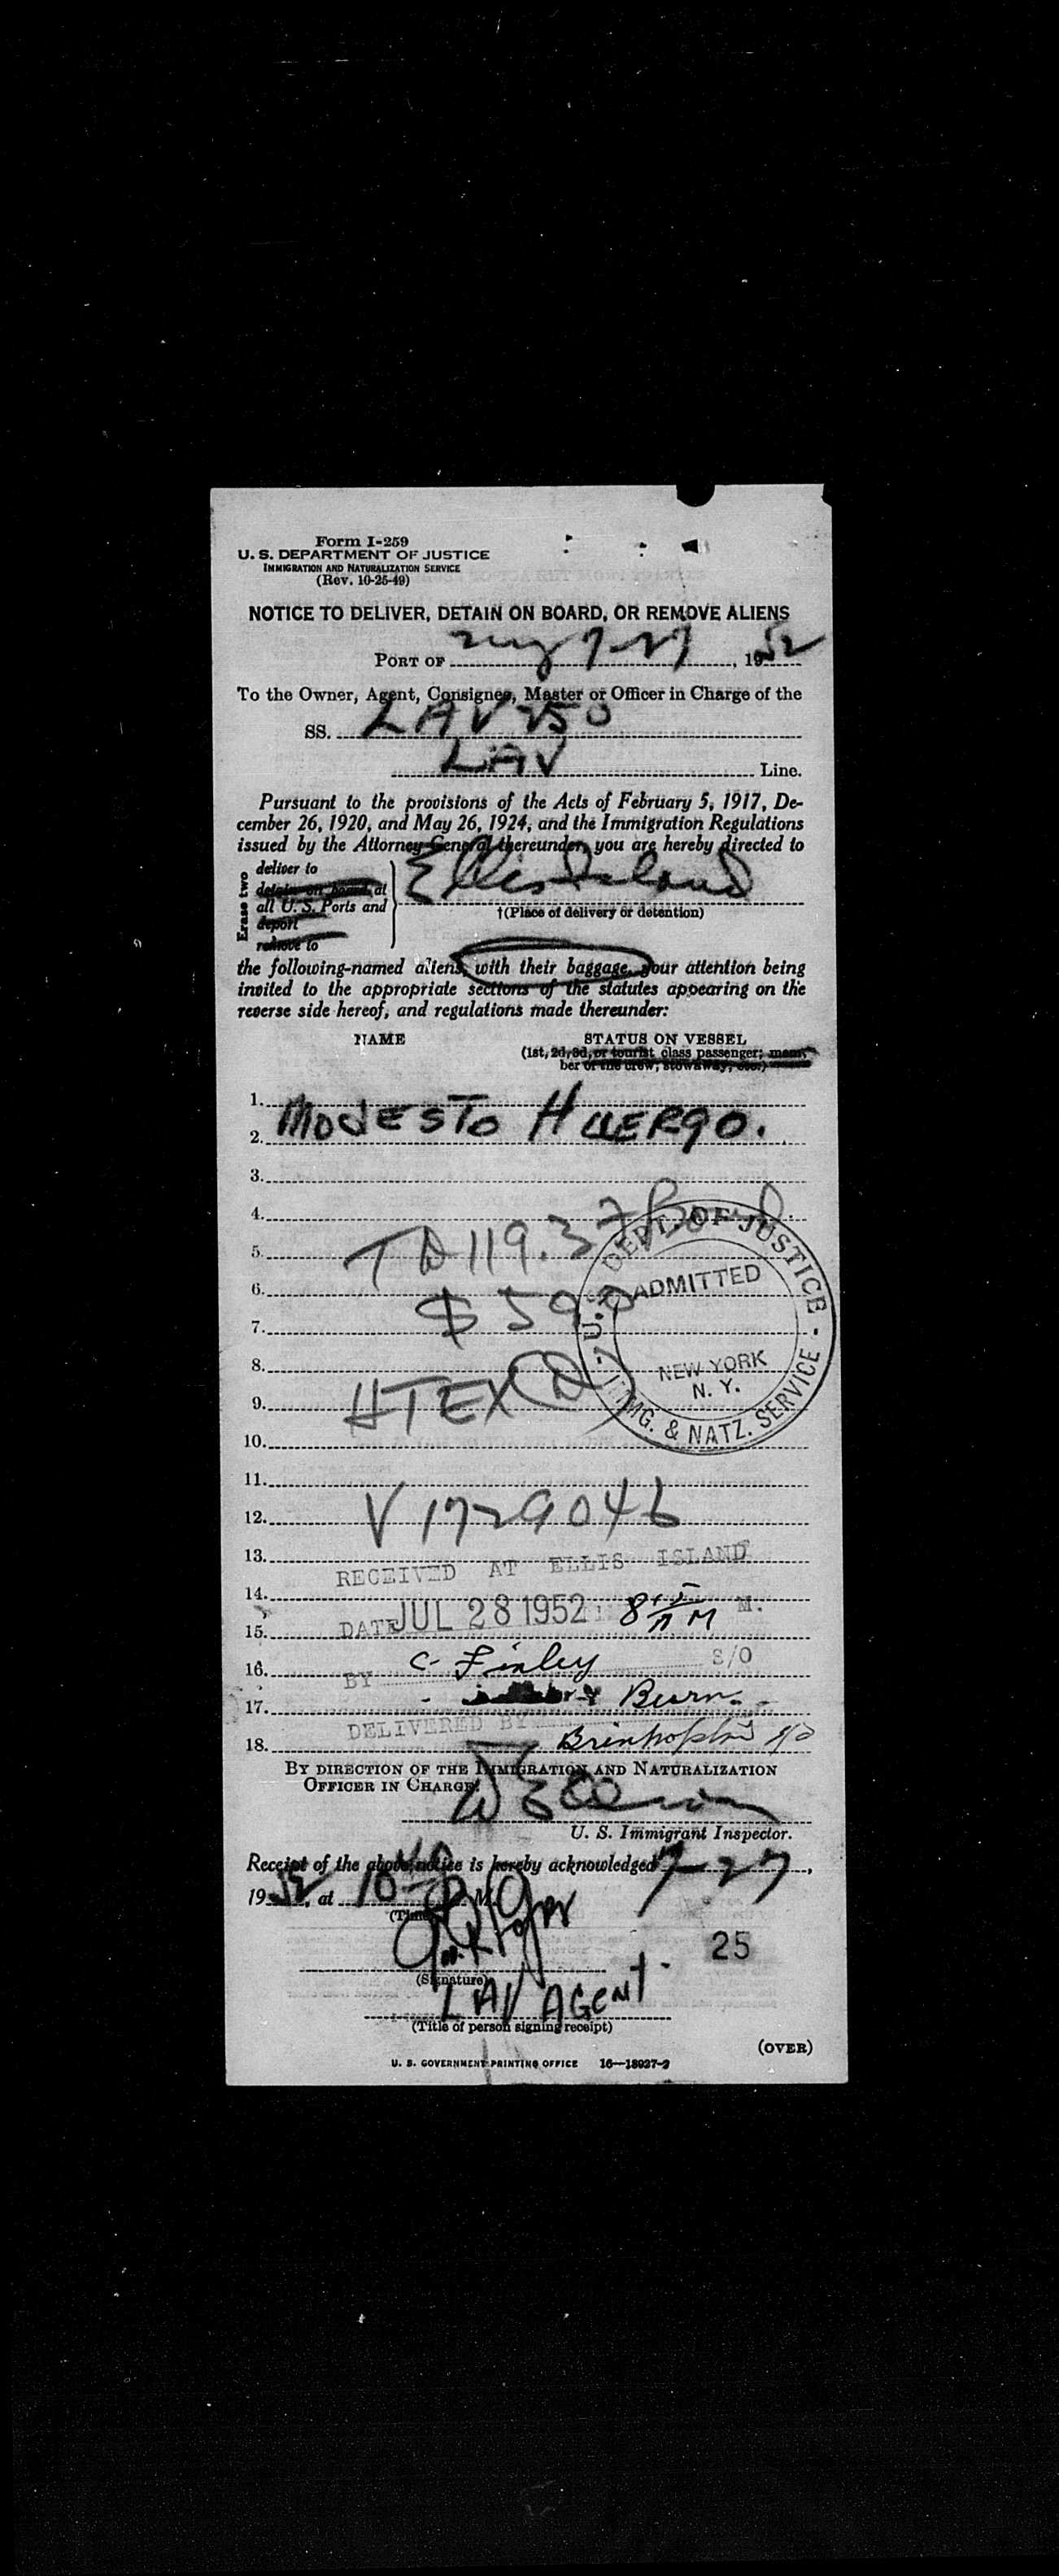 Form I-259
U. S. DEPARTMENT OF JUSTICE
IMMIGRATION AND NATURALIZATION SERVICE
(Rev. 10-25-49)
NOTICE TO DELIVER, DETAIN ON BOARD, OR REMOVE ALIENS
PORT OF 7-27, 1952
To the Owner, Agent, Consignee, Master or Officer in Charge of the
SS. LAV 250
LAV Line.
Pursuant to the provisions of the Acts of February 5, 1917, De-
cember 26, 1920, and May 26, 1924, and the Immigration Regulations
issued by the Attorney General thereunder, you are hereby directed to
Erase two
deliver to
detain on board at
all U. S. Ports and
deport
remove to
Ellis Island
†(Place of delivery or detention)
the following-named aliens, with their baggage, your attention being
invited to the appropriate sections of the statutes appearing on the
reverse side hereof, and regulations made thereunder:
NAME STATUS ON VESSEL
(1st, 2d, 3d, or tourist class passenger; mem-
ber of the crew; stowaway, etc.)
1.
2. MODESTO HUERGO.
3.
4.
5. TD 119.37 Bond
6.
7. $ 59.0
8.
9. HTEX (D)
U. S. DEPT. OF JUSTICE - IMMG. & NATZ. SERVICE -
ADMITTED
NEW YORK
N. Y.
10.
11.
12. V 1729046
13.
RECEIVED AT ELLIS ISLAND
14.
DATE JUL 28 1952 8 15 AM M.
15.
16. BY C. Finley S/O
17. Burn
DELIVERED BY
18.
BY DIRECTION OF THE IMMIGRATION AND NATURALIZATION
OFFICER IN CHARGE:
U. S. Immigrant Inspector.
Receipt of the above notice is hereby acknowledged 7-27,
1952, at 10 M.
(Time)
(Signature)
25
LAV AGENT.
(Title of person signing receipt)
(OVER)
U. S. GOVERNMENT PRINTING OFFICE 16—18027-2